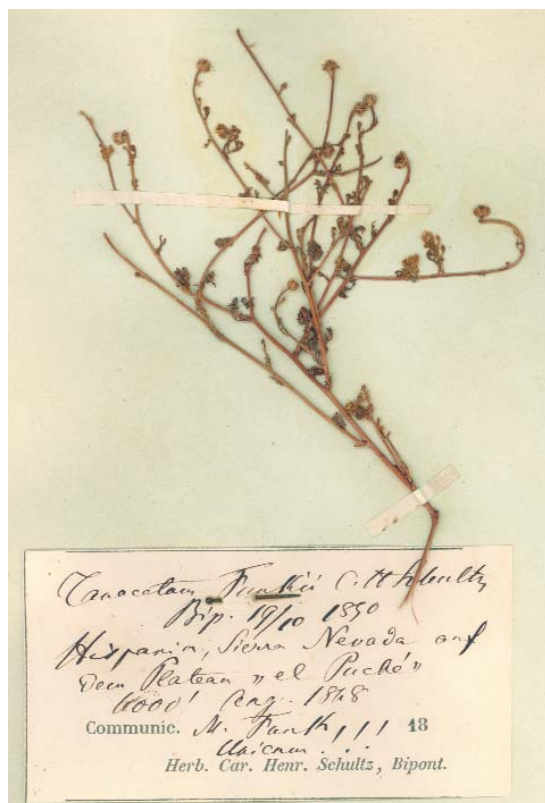 Tanacetum Funkii C. H. Schultz
Bip. 19/10 1850
Hispania, Sierra Nevada auf
dem Plateau „ el Puché "
6000' Aug. 1848
Communic. M. Funk ! ! ! 18
Unicum . . .
Herb. Car. Henr. Schultz, Bipont.